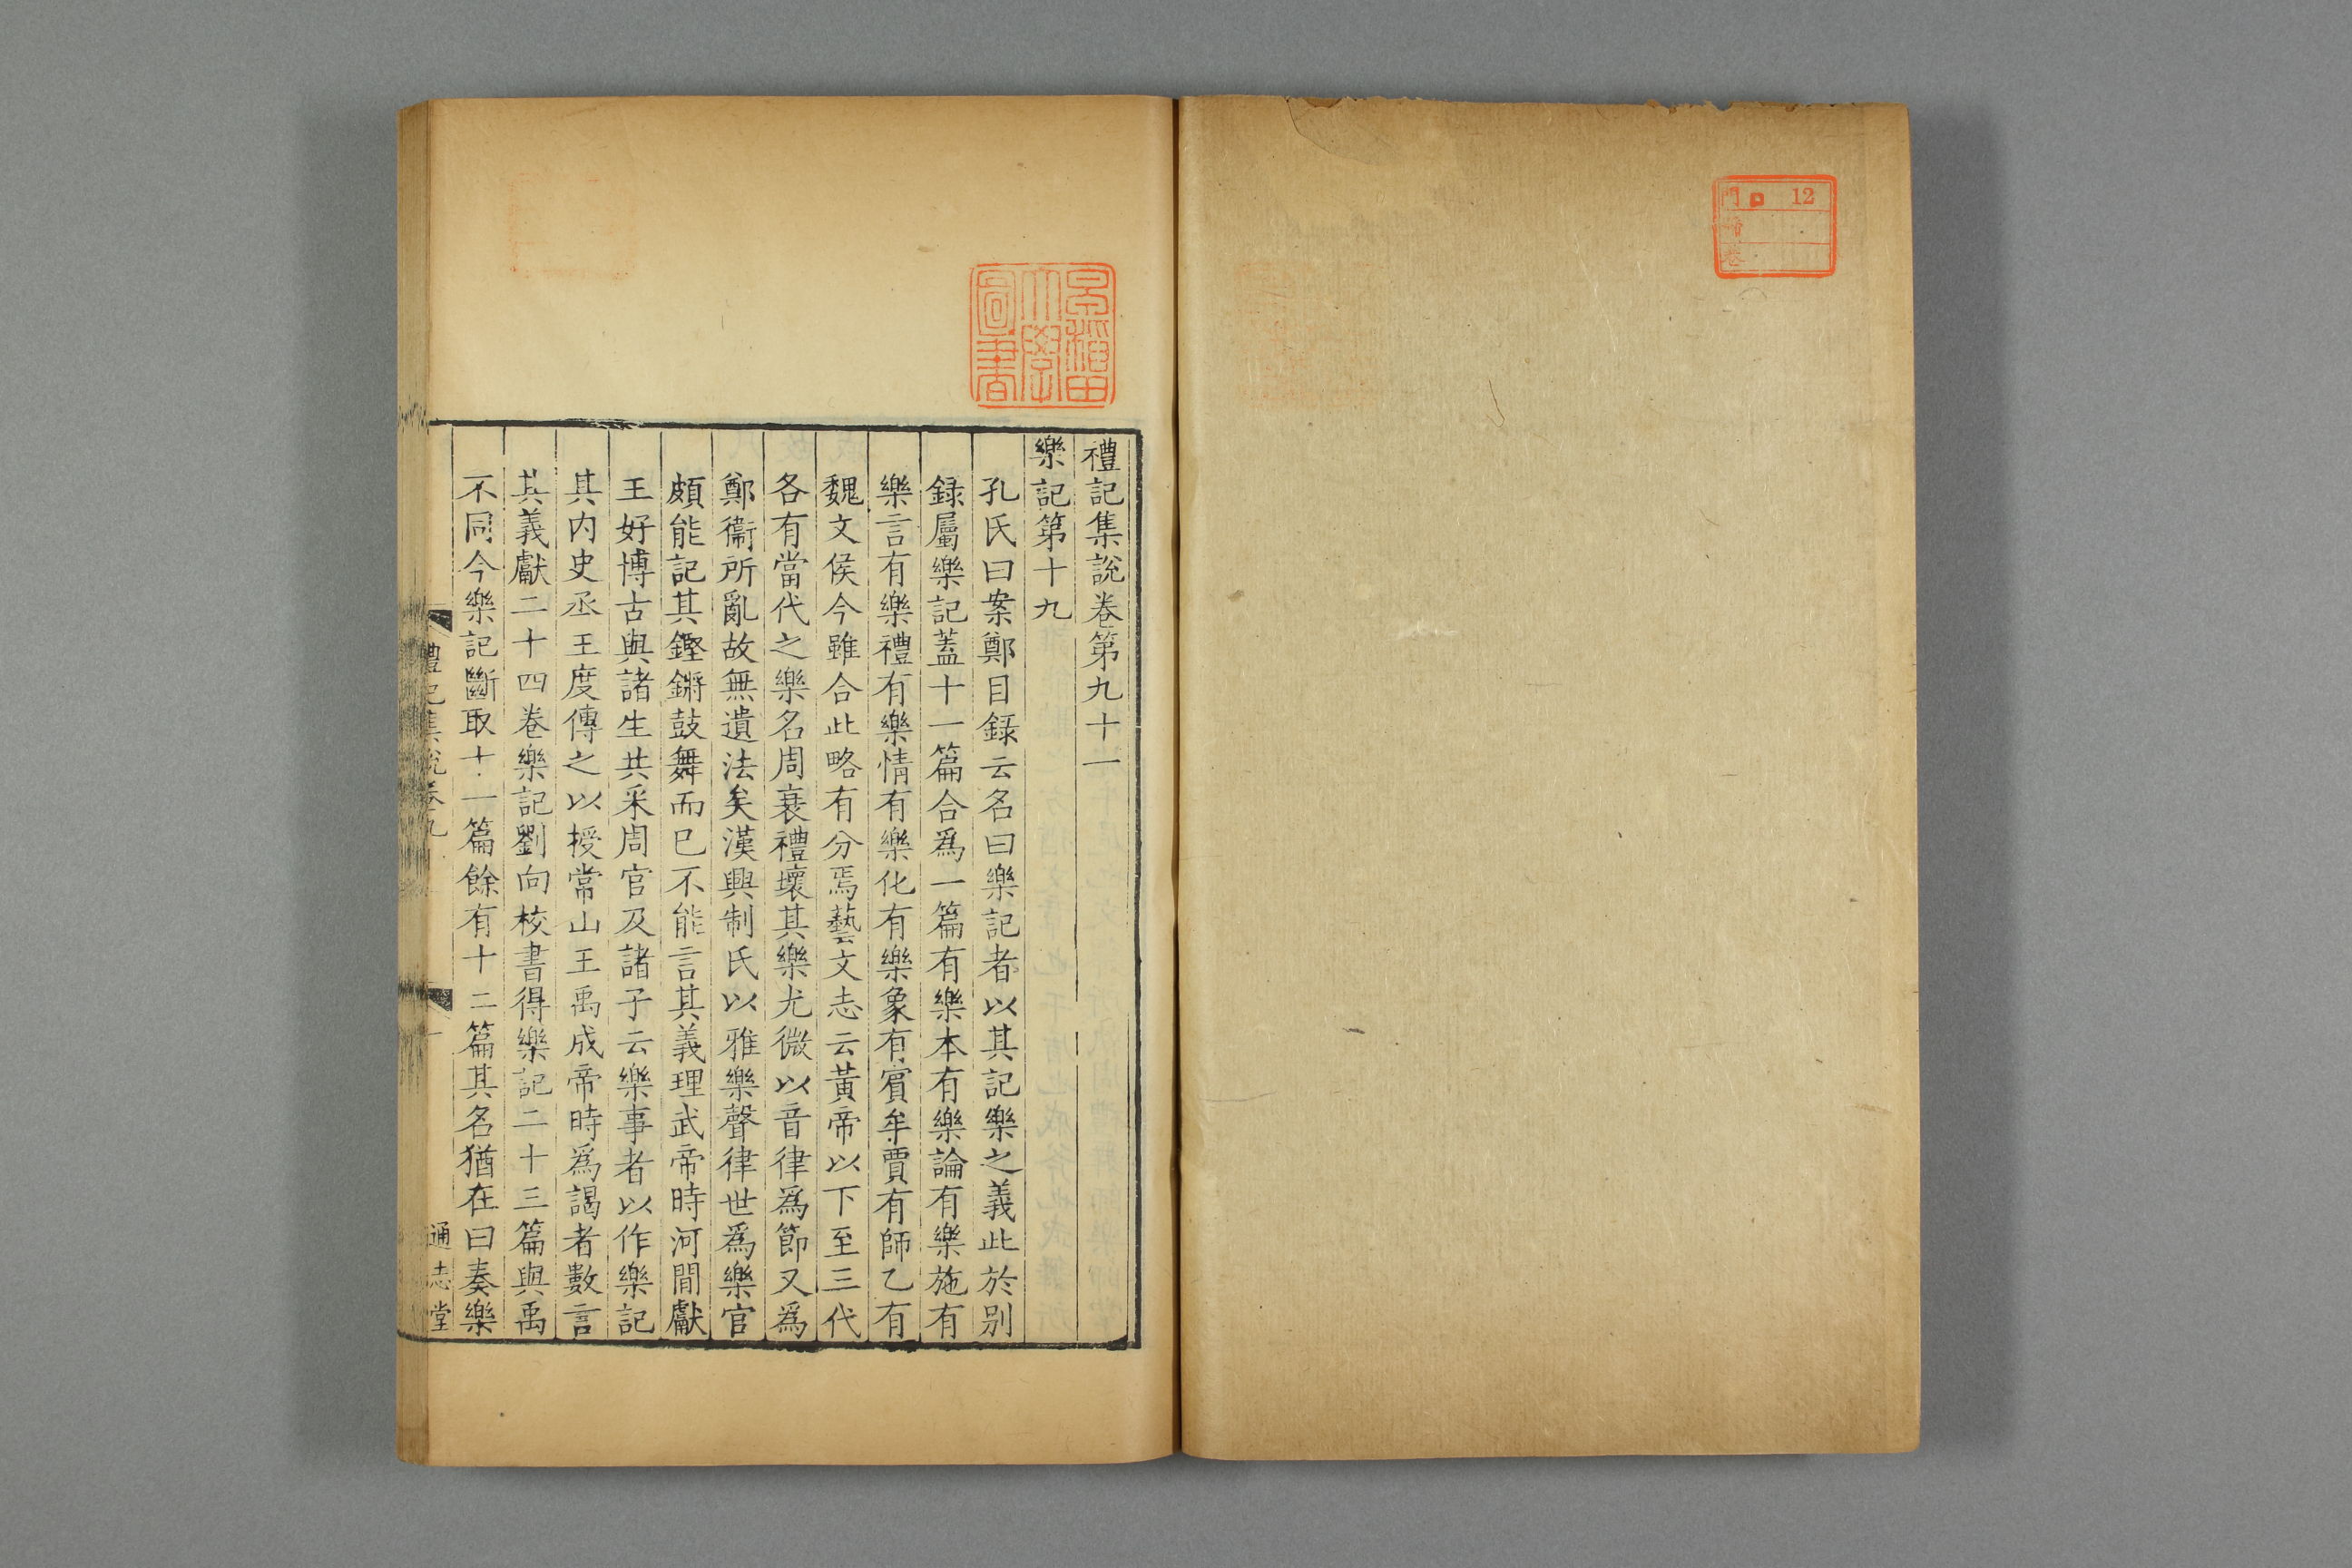 門 12
番
卷
早稲田大學圖書
禮記集說卷第九十一
樂記第十九
孔氏曰案鄭目録云名曰樂記者以其記樂之義此於别
録屬樂記蓋十一篇合爲一篇有樂本有樂論有樂施有
樂言有樂禮有樂情有樂化有樂象有賓牟賈有師乙有
魏文侯今雖合此略有分焉藝文志云黃帝以下至三代
各有當代之樂名周衰禮壞其樂尤微以音律爲節又爲
鄭衞所亂故無遺法矣漢興制氏以雅樂聲律世爲樂官
頗能記其鏗鏘鼓舞而巳不能言其義理武帝時河間獻
王好博古與諸生共采周官及諸子云樂事者以作樂記
其内史丞王度傳之以授常山王禹成帝時爲謁者數言
其義獻二十四卷樂記劉向校書得樂記二十三篇與禹
不同今樂記斷取十一篇餘有十二篇其名猶在曰奏樂
禮記集說卷九 一 通志堂